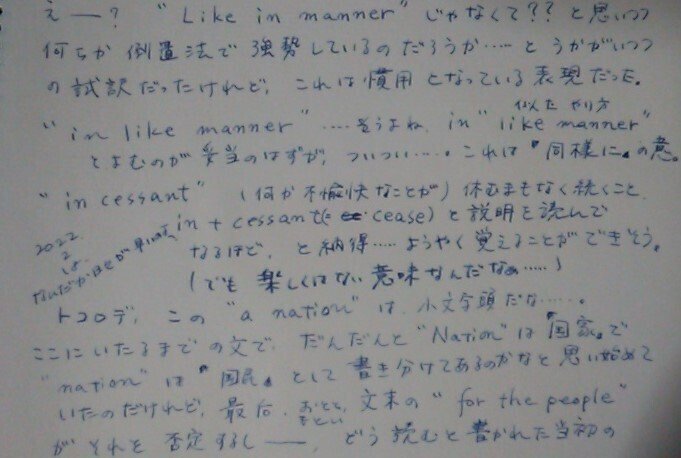 えー? “Like in manner” じゃなくて?? と思いつつ
何らか 倒置法で 強勢しているのだろうか‥‥と うかがいつつ
の試訳だったけれど、これは慣用となっている表現だった。
“in like manner” ‥‥そうよね、in “like manner”
似た やり方
とよむのが 妥当のはずが、ついつい‥‥。これは『同様に』の意。
“in cessant” (何か不愉快なことが) 休むまもなく続くこと
in + cessant(= cease) と説明を読んで
なるほど、と納得‥‥ようやく覚えることができそう。
(でも 楽しくはない 意味なんだなぁ‥‥‥)
2022
2
なんだか日々が早いです。
トコロデ、この “a nation” は、小文字頭だな‥‥‥。
ここにいたるまでの文で、だんだんと “Nation” は『国家』で
“nation” は『国民』として 書き分けてあるのかなと思い始めて
いたのだけれど、最后、文末の “for the people”
がそれを否定するし――、どう読むと書かれた当初の